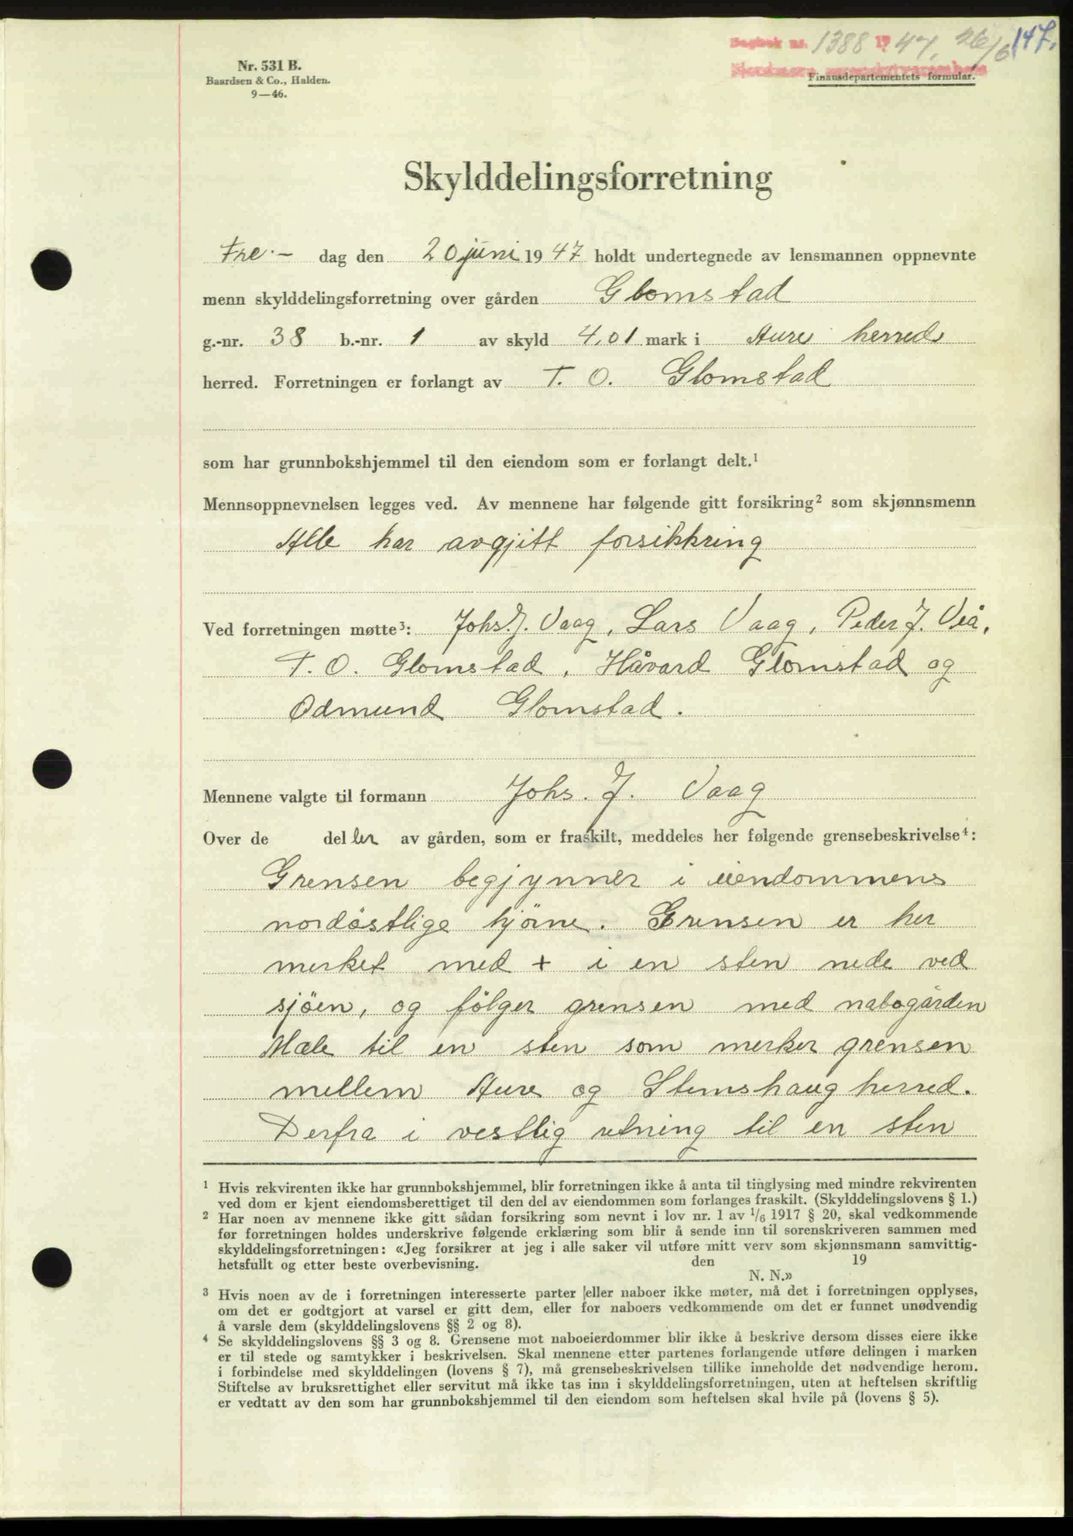 Dagbok nr. 1388 1947, 26/6 147.
Nordmøre sorenskriverembete
Nr. 531 B.
Baardsen & Co., Halden.
9—46.
Finansdepartementets formular.
Skylddelingsforretning
Fre.- dag den 20 juni 1947 holdt undertegnede av lensmannen oppnevnte
menn skylddelingsforretning over gården Glomstad
g.-nr. 38 b.-nr. 1 av skyld 4,01 mark i Aure herred
herred. Forretningen er forlangt av T. O. Glomstad
som har grunnbokshjemmel til den eiendom som er forlangt delt.¹
Mennsoppnevnelsen legges ved. Av mennene har følgende gitt forsikring² som skjønnsmenn
Alle har avgjitt forsikkring
Ved forretningen møtte³: Johs. J. Vaag, Lars Vaag, Peder J. Viå,
T. O. Glomstad, Håvard Glomstad og
Odmund Glomstad.
Mennene valgte til formann Johs. J. Vaag
Over de deller av gården, som er fraskilt, meddeles her følgende grensebeskrivelse⁴:
Grensen begjynner i eiendommens
nordöstlige hjörne. Grensen er her
merket med + i en sten nede ved
sjöen, og fölger grensen med nabogården
Mæle til en sten som merker grensen
mellem Aure og Stemshaug herred.
Derfra i vestlig retning til en sten
¹ Hvis rekvirenten ikke har grunnbokshjemmel, blir forretningen ikke å anta til tinglysing med mindre rekvirenten
ved dom er kjent eiendomsberettiget til den del av eiendommen som forlanges fraskilt. (Skylddelingslovens § 1.)
² Har noen av mennene ikke gitt sådan forsikring som nevnt i lov nr. 1 av 1/6 1917 § 20, skal vedkommende
før forretningen holdes underskrive følgende erklæring som blir å sende inn til sorenskriveren sammen med
skylddelingsforretningen: «Jeg forsikrer at jeg i alle saker vil utføre mitt verv som skjønnsmann samvittig-
hetsfullt og etter beste overbevisning. den 19
N. N.»
³ Hvis noen av de i forretningen interesserte parter eller naboer ikke møter, må det i forretningen opplyses,
om det er godtgjort at varsel er gitt dem, eller for naboers vedkommende om det er funnet unødvendig
å varsle dem (skylddelingslovens §§ 2 og 8).
⁴ Se skylddelingslovens §§ 3 og 8. Grensene mot naboeierdommer blir ikke å beskrive dersom disses eiere ikke
er til stede og samtykker i beskrivelsen. Skal mennene etter partenes forlangende utføre delingen i marken
i forbindelse med skylddelingen (lovens § 7), må grensebeskrivelsen tillike inneholde det nødvendige herom.
Stiftelse av bruksrettighet eller servitut må ikke tas inn i skylddelingsforretningen, uten at heftelsen skriftlig
er vedtatt av den som har grunnbokshjemmel til den eiendom som heftelsen skal hvile på (lovens § 5).